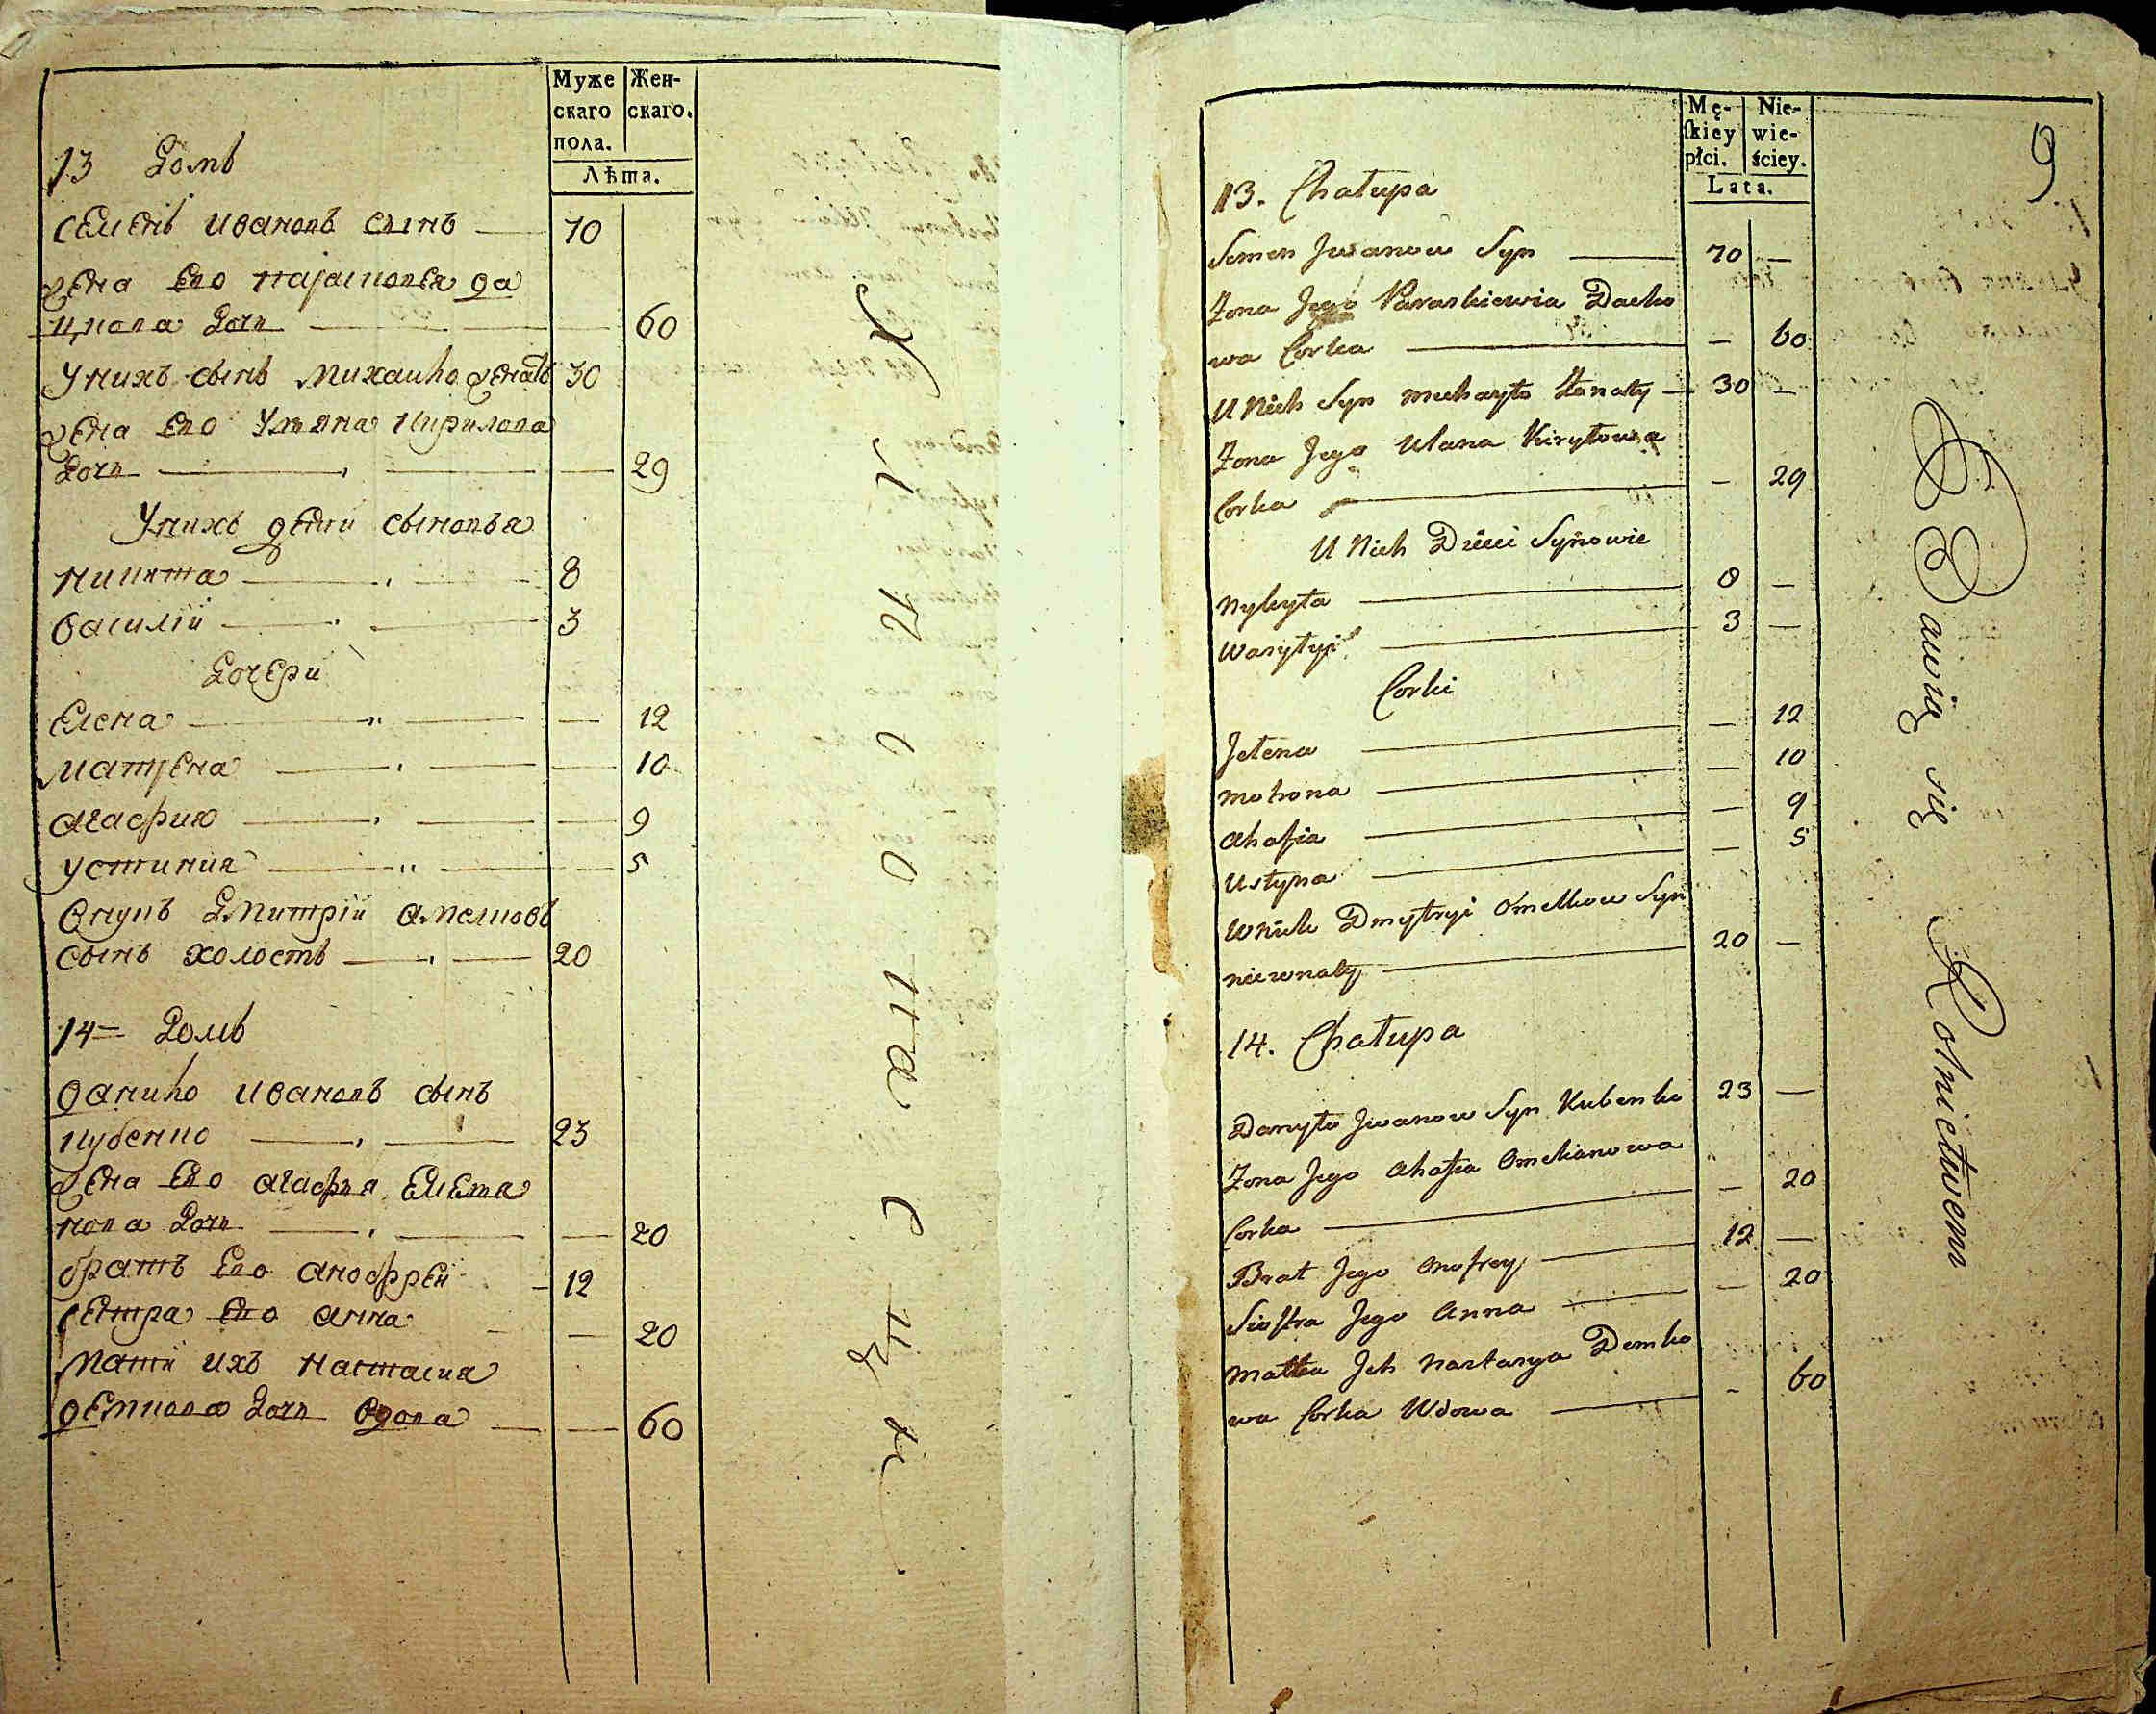 Муже
скаго
пола.
Жен-
скаго.
Лѣта.
13 Домъ
Семенъ Ивановъ сынъ 70
жена его Парасковея Да
цкова дочь 60
У нихъ сынъ Михайло женатъ 30
жена его Ульяна Кирилова
дочь 29
У нихъ дети сыновья
Никита 8
Василій 3
Дочери
Елена 12
Матрена 10
Агафия 9
Устиния 5
Внукъ Дмитрій
сынъ холостъ 20
14 Домъ
Данило Ивановъ сынъ
Кубенко 23
жена его Агафья Емелья
нова дочь 20
братъ его Анофрей 12
сестра его Анна 20
Мать ихъ Настасия
Демкова дочь вдова 60
Mę-
skiey
płci.
Nie-
wie-
ściey.
Lata.
9
13. Chałupa
Semen Jwanow Syn 70 —
Żona Jego Paraskiewia Dacko
wa Corka — 60
U Nich Syn Michayło Żonaty 30 —
Żona Jego Ulana Kiryłowa
Corka — 29
U Nich Dzieci Synowie
Nykyta 8 —
Wasylyi 3 —
Corki
Jelena — 12
Motrona — 10
Ahafia — 9
Ustyna — 5
Wnuk Dmytryi Omelkow Syn
niezonaty 20 —
14. Chałupa
Danyło Jwanow Syn Kubenko 23 —
Żona Jego Ahafia Omelianowa
Corka — 20
Brat Jego Onofrey 12 —
Siostra Jego Anna — 20
Matka Jch Nastasya Demko
wa Corka Wdowa — 60
Bawią się Rolnictwem